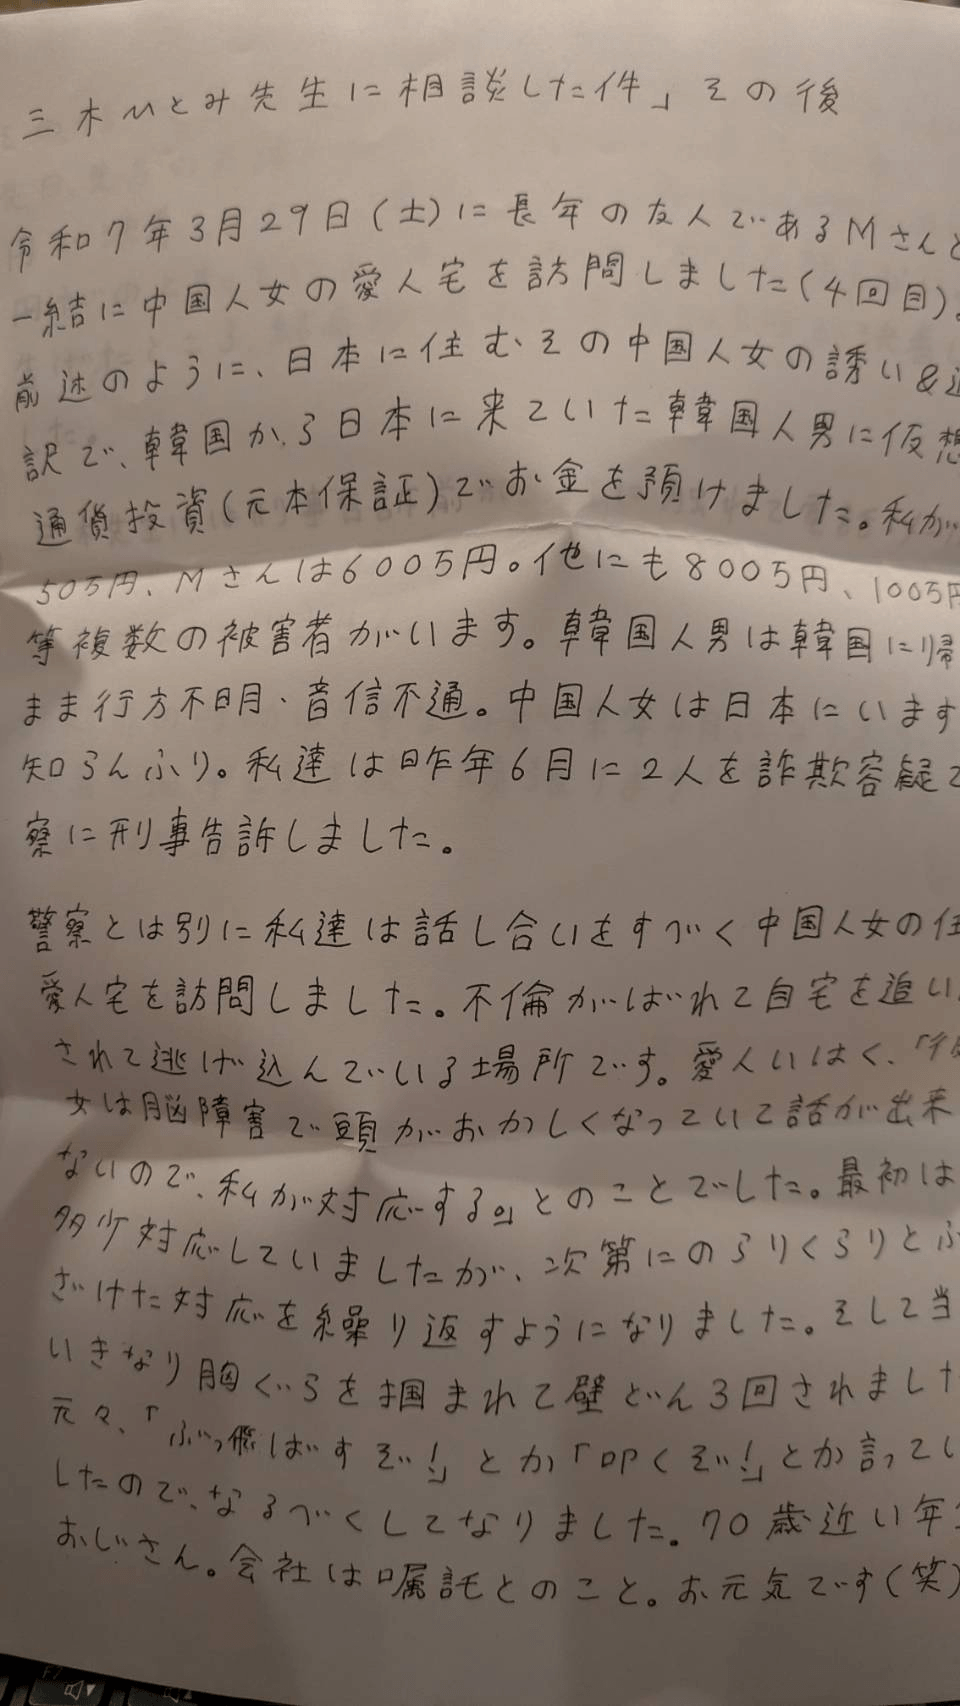 三木ひとみ先生に相談した件」その後
令和7年3月29日(土)に長年の友人であるMさんと
一緒に中国人女の愛人宅を訪問しました(4回目)。
前述のように、日本に住むその中国人女の誘い&通
訳で、韓国から日本に来ていた韓国人男に仮想
通貨投資(元本保証)でお金を預けました。私が
50万円、Mさんは600万円。他にも800万円、100万円
等複数の被害者がいます。韓国人男は韓国に帰
まま行方不明・音信不通。中国人女は日本にいます
知らんふり。私達は昨年6月に2人を詐欺容疑で
察に刑事告訴しました。
警察とは別に私達は話し合いをすべく中国人女の住
愛人宅を訪問しました。不倫がばれて自宅を追い
されて逃げ込んでいる場所です。愛人いはく、「彼
女は脳障害で頭がおかしくなっていて話が出来
ないので、私が対応する。」とのことでした。最初は
多少対応していましたが、次第にのらりくらりとふ
ざけた対応を繰り返すようになりました。そして当
いきなり胸ぐらを掴まれて壁どん3回されました
元々、「ぶっ飛ばすぞ!」とか「叩くぞ!」とか言ってい
したので、なるべくしてなりました。70歳近い年
おじさん。会社は嘱託とのこと。お元気です(笑)
F7